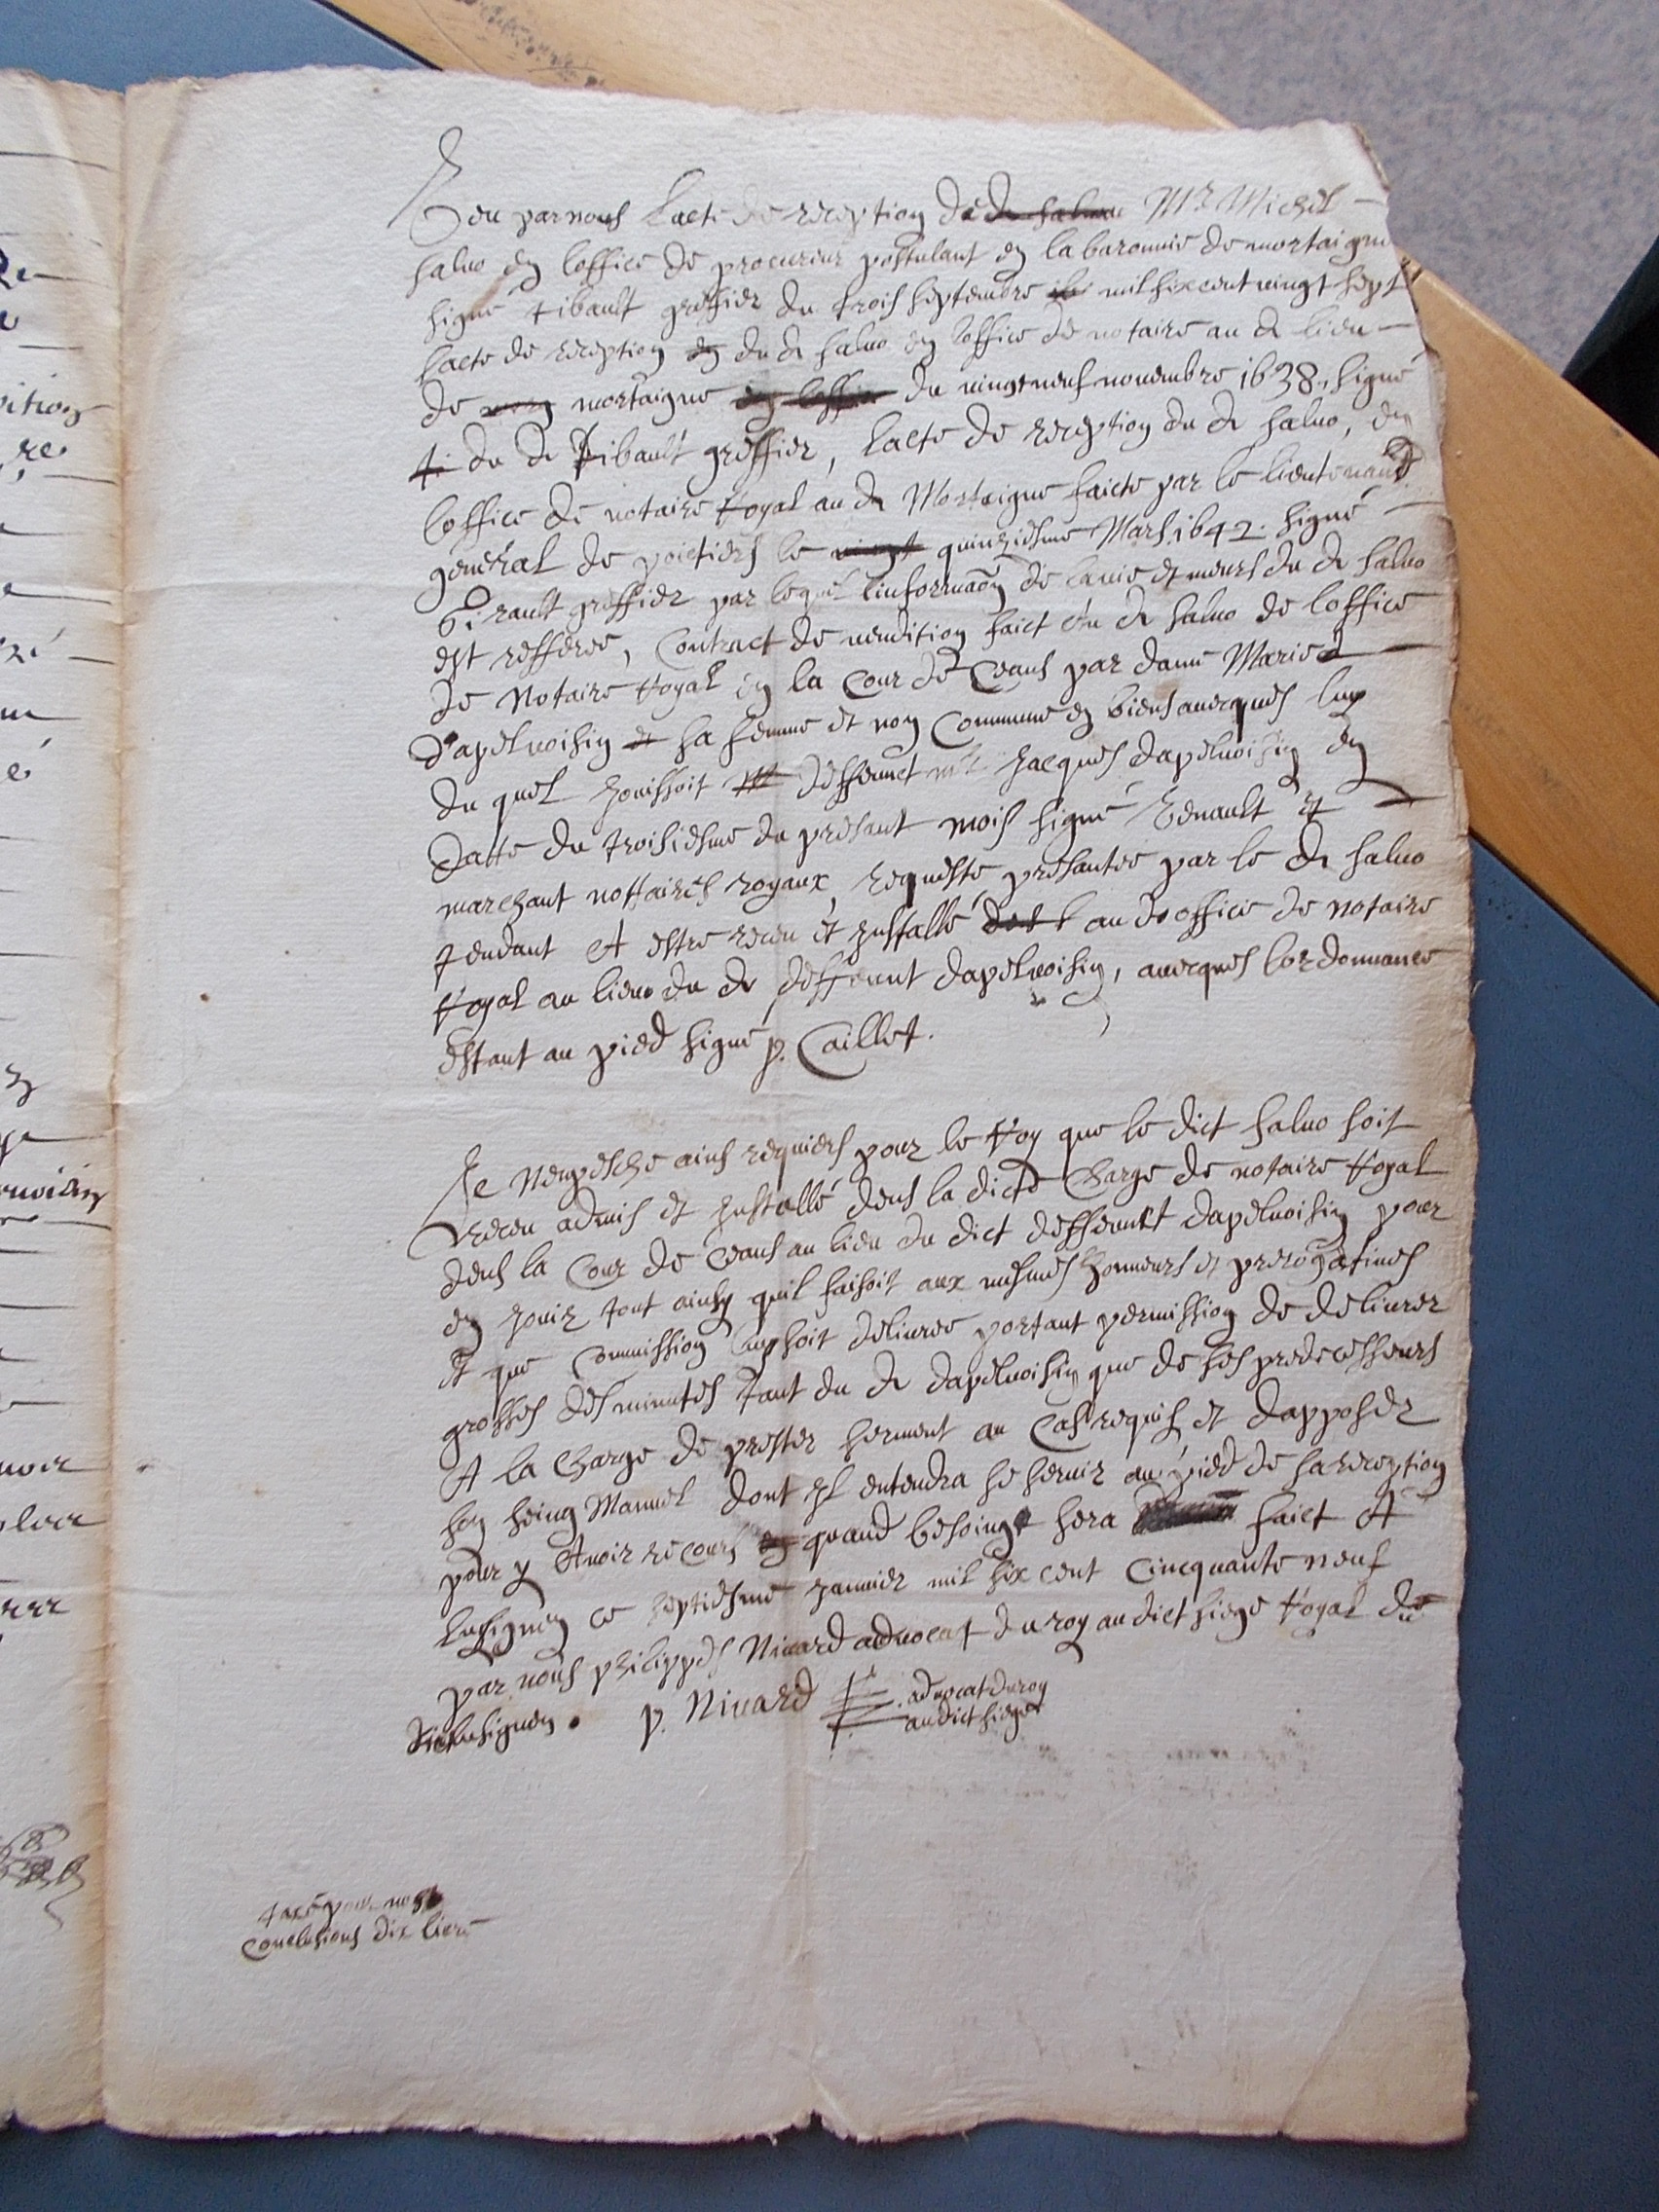 Veu par nous lacte de reception de Mr Michel
salvo en loffice de procureur postulant en la baronnie de mortaigne
signé tibault greffier du trois septembre mil six cent vingt sept
lacte de reception du dt salvo en loffice de notaire au dt lieu
de mortaigne du vingt neuf novembre 1638, signé
du dt tibault greffier, lacte de reception du dt salvo, en
loffice de notaire royal au dt Mortaigne faicte par le lieutenant
general de poictiers le quinziesme Mars 1642. signé
Girault greffier par lequel linformaōn de la vie et meurs du dt salvo
est refferee, Contract de vendition faict au dt salvo de loffice
de Notaire royal en la Cour de Ceans par dame Marie
dapelvoisin sa femme et non Commune en biens avecques luy
du quel jouissoit deffunct Jacques dapelvoisin en
datte du troisiesme du presant mois signé et
marchant nottaires royaux, requeste presantee par le dt salvo
tendant A estre receu et Justallé au dt office de notaire
royal au lieu du dt deffunt dapelvoisin, avecques lordonnance
estant au pied signé p. Caillet.
Je Nempesche ains requiers pour le roy que le dict salvo soit
receu admis et Justallé dens la dicte Charge de notaire royal
dens la Cour de Ceans au lieu du dict deffunkt dapelvoisin pour
en jouir tout ainsy quil faisoit aux mesmes honneurs et prerogatives
Et que Commission luy soit delivree portant permission de delivrer
grosses des minutes tant du dt dapelvoisin que de ses predecesseurs
A la Charge de prester serment au Cas requis et dapposer
son seing Manuel dont Jl entendra se servir au pied de sa reception
pour y Avoir recours quand besoingt sera faict A
Lusignen ce septiesme janvier mil six cent Cincquante neuf
par nous philippes Nivard advocat du roy au dict siege royal du
dict lusignen. p. Nivard advocat du roy
au dict siege
taxé pour nos
Conclusions dix livres